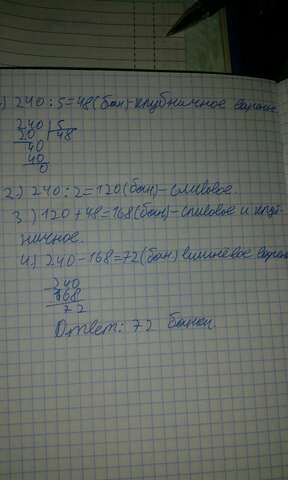 1) 240:5=48(бан)-клубничное варенье
240 | 5
20 48
40
40
0
2) 240:2=120(бан)-сливовое
3) 120+48=168(бан)-сливовое и клуб-
ничное.
4) 240-168=72(бан) вишнёвое варенье
240
168
72
Ответ: 72 банки.